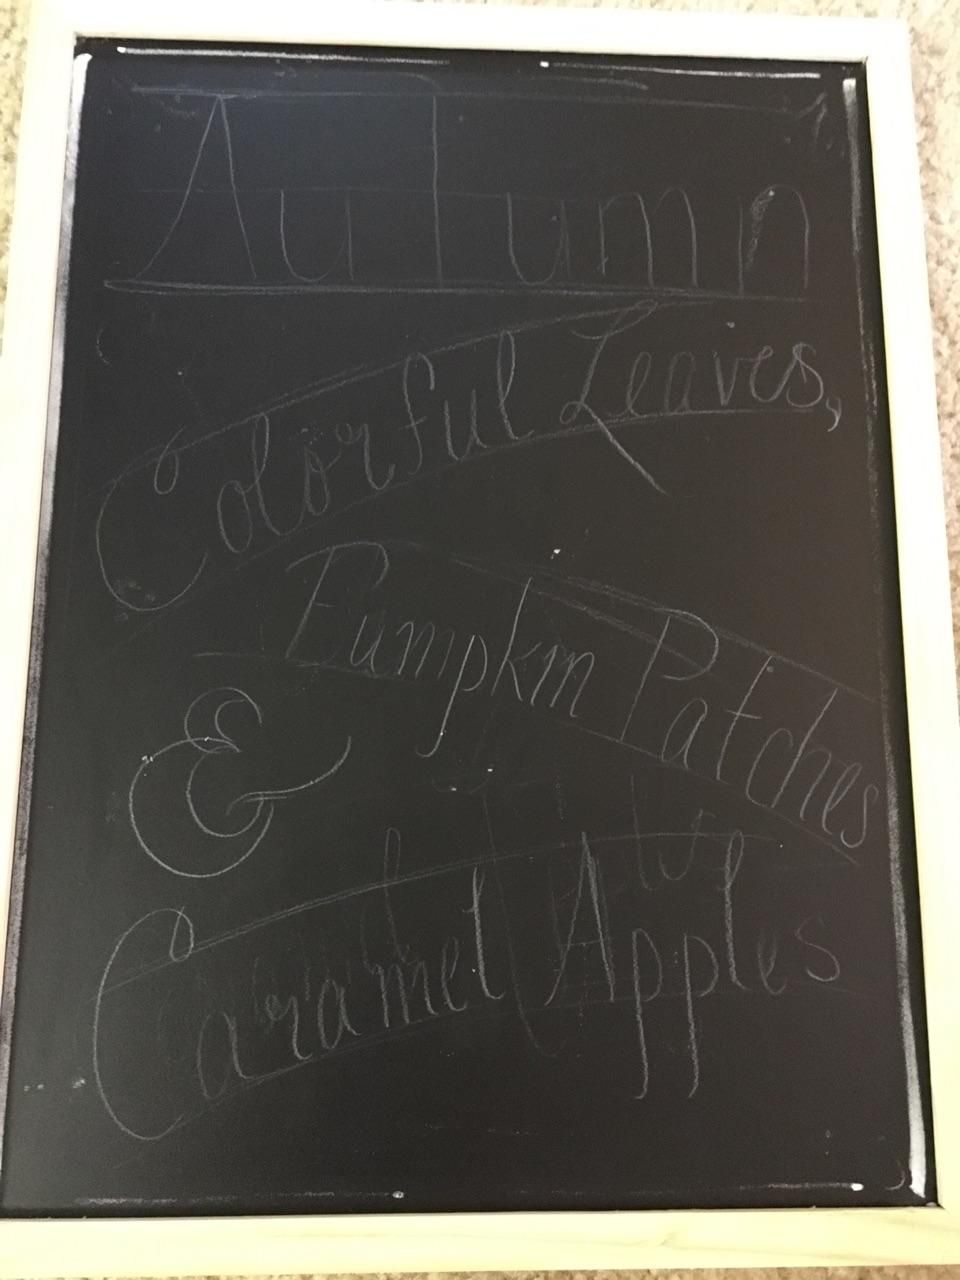 Autumn
Colorful Leaves,
Pumpkin Patches
&
Caramel Apples